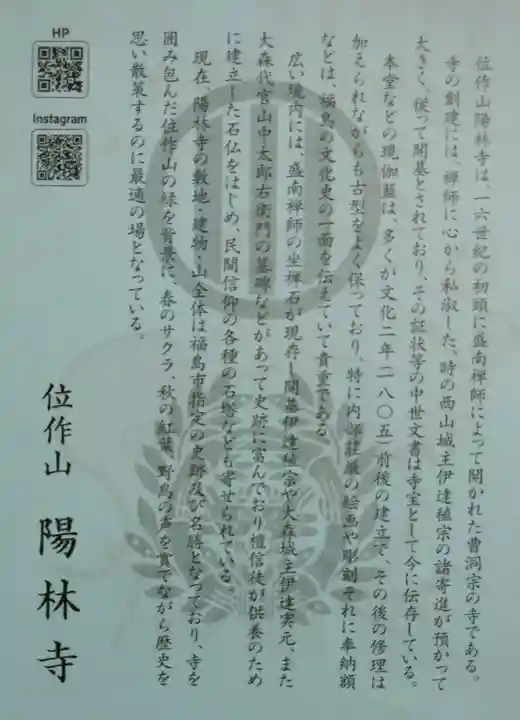 位作山陽林寺は、一六世紀の初頭に盛南禅師によって開かれた曹洞宗の寺である。
寺の創建には、禅師に心から私淑した、時の西山城主伊達稙宗の諸寄進が預かって
大きく、従って開基とされており、その証状等の中世文書は寺宝として今に伝存している。
本堂などの現伽藍は、多くが文化二年(一八〇五)前後の建立で、その後の修理は
加えられながらも古型をよく保っており、特に内部荘厳の絵画や彫刻それに奉納額
などは、福島の文化史の一面を伝えていて貴重である。
広い境内には、盛南禅師の坐禅石が現存し開基伊達稙宗や大森城主伊達実元、また
大森代官山中太郎右衛門の墓碑などがあって史跡に富んでおり檀信徒が供養のため
に建立した石仏をはじめ、民間信仰の各種の石塔なども寄せられている。
現在、陽林寺の敷地・建物・山全体は福島市指定の史跡及び名勝となっており、寺を
囲み包んだ位作山の緑を背景に、春のサクラ、秋の紅葉、野鳥の声を賞でながら歴史を
思い散策するのに最適の場となっている。
位作山 陽林寺
HP
Instagram